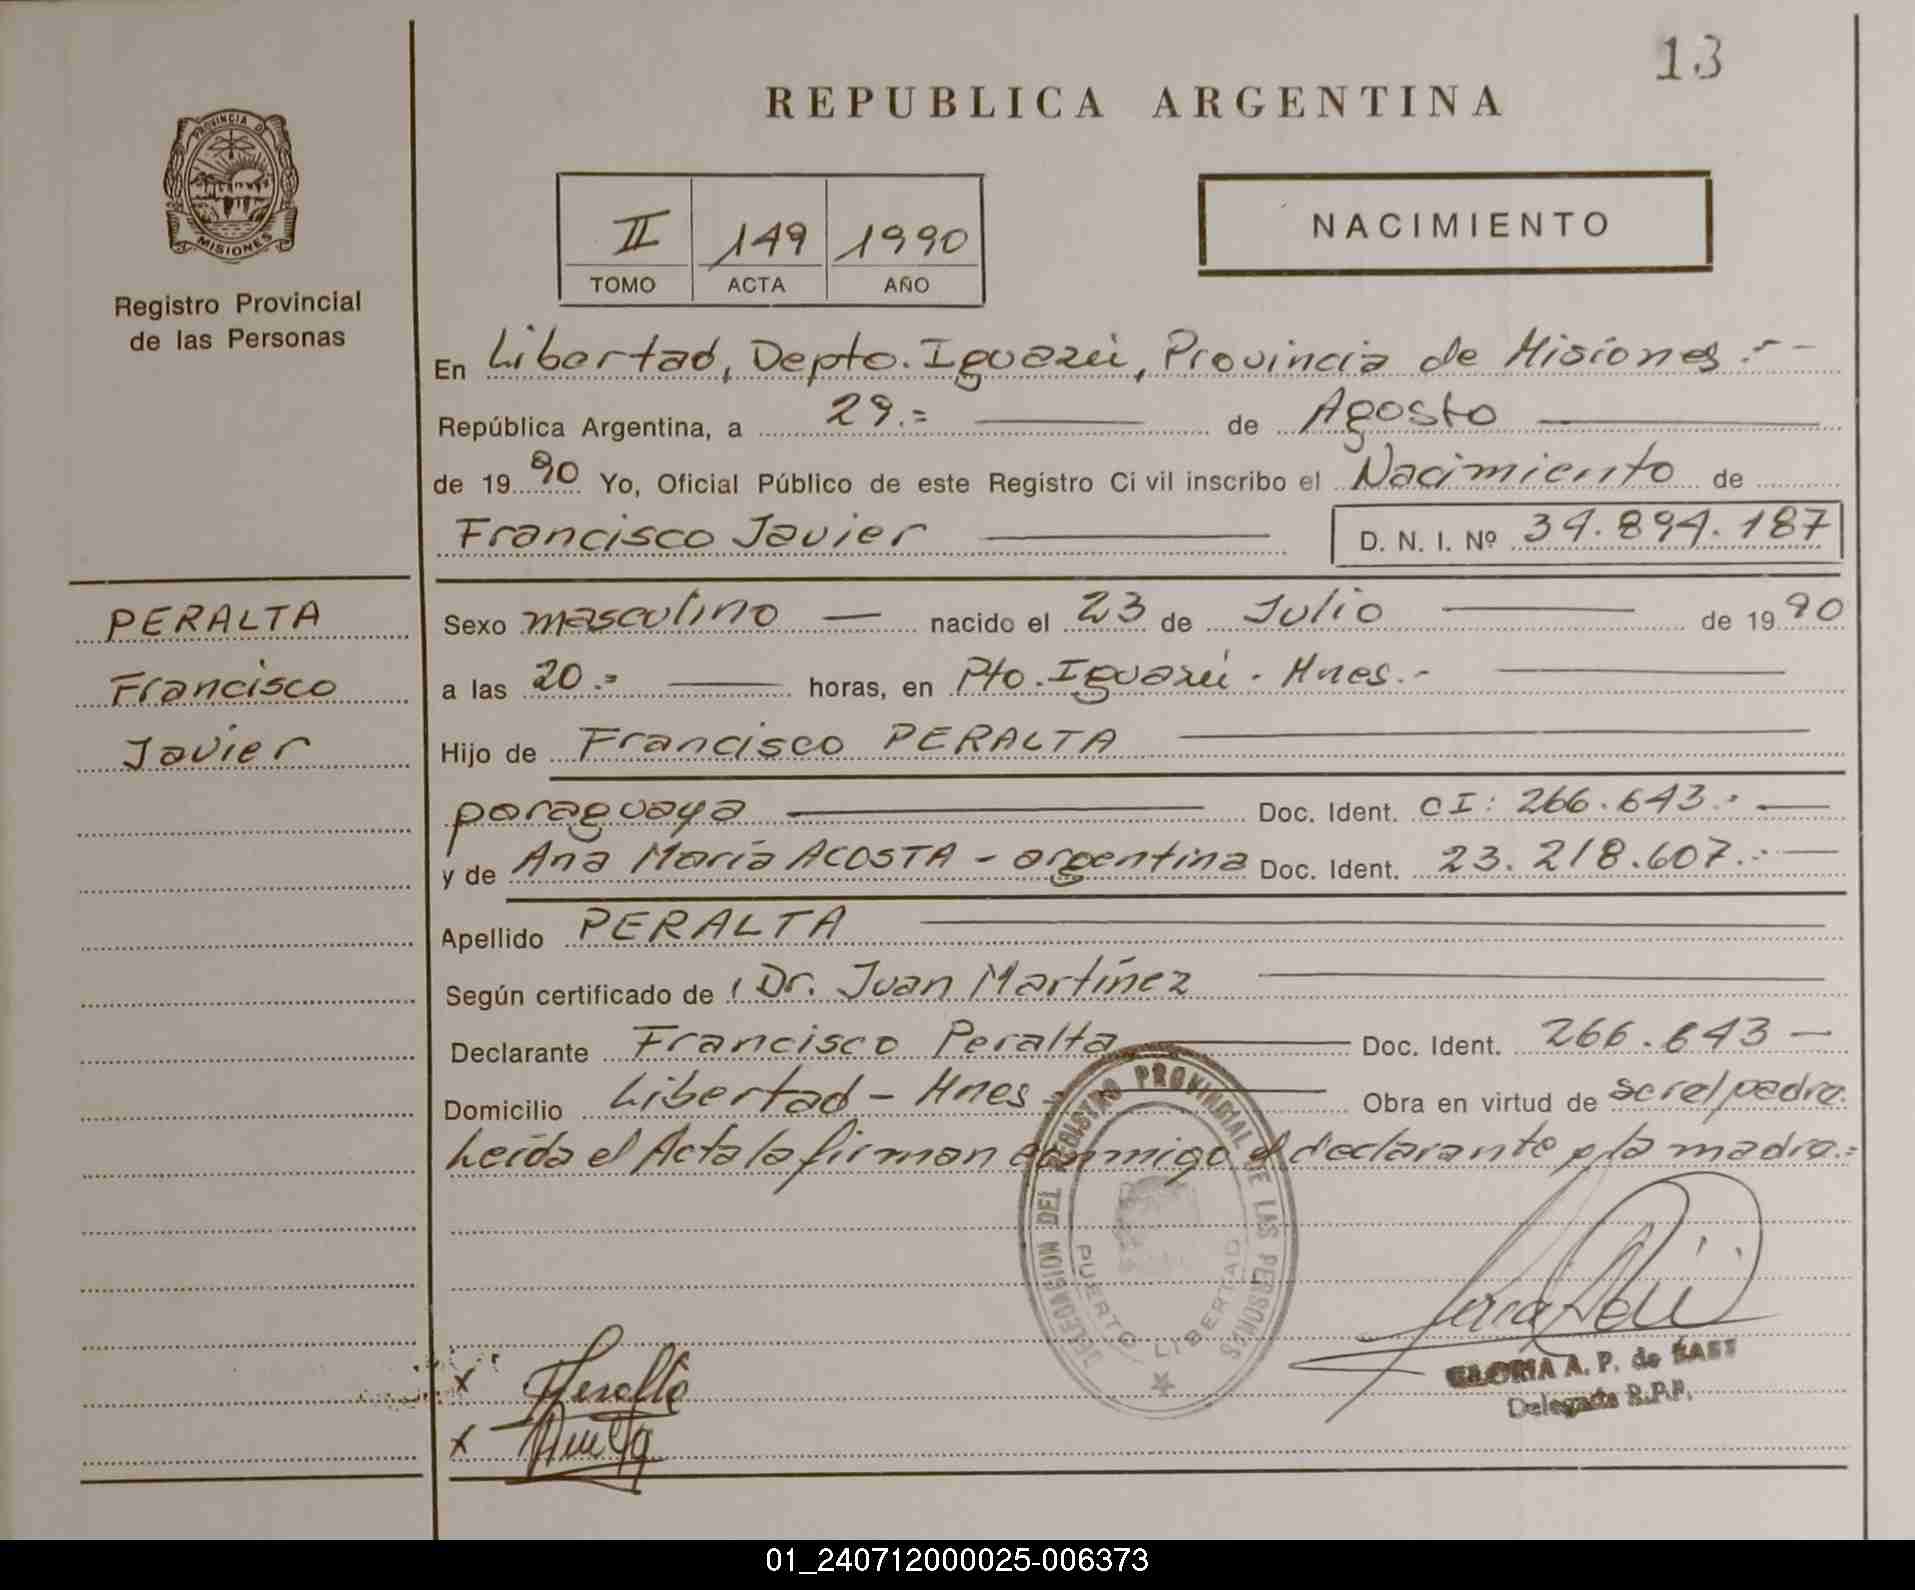 13
REPUBLICA ARGENTINA
PROVINCIA D
MISIONES
Registro Provincial
de las Personas
II 149 1990
TOMO ACTA AÑO
NACIMIENTO
En Libertad, Depto. Iguazú, Provincia de Misiones.--
República Argentina, a 29.= de Agosto
de 1990 Yo, Oficial Público de este Registro Civil inscribo el Nacimiento de
Francisco Javier D. N. I. Nº 34.894.187
PERALTA
Francisco
Javier
Sexo masculino nacido el 23 de Julio de 1990
a las 20.= horas, en Pto. Iguazú. Mnes.-
Hijo de Francisco PERALTA
paraguaya Doc. Ident. CI: 266.643.-
y de Ana María ACOSTA - argentina Doc. Ident. 23.218.607.-
Apellido PERALTA
Según certificado de Dr. Juan Martínez
Declarante Francisco Peralta Doc. Ident. 266.643 -
Domicilio Libertad - Mnes Obra en virtud de padre.
Leída el Acta la firman conmigo el declarante y la madre.=
DELEGACION DEL REGISTRO PROVINCIAL DE LAS PERSONAS
PUERTO LIBERTAD
x Peralta
x
GLORIA A. P. de
Delegada R.P.P.
01_240712000025-006373